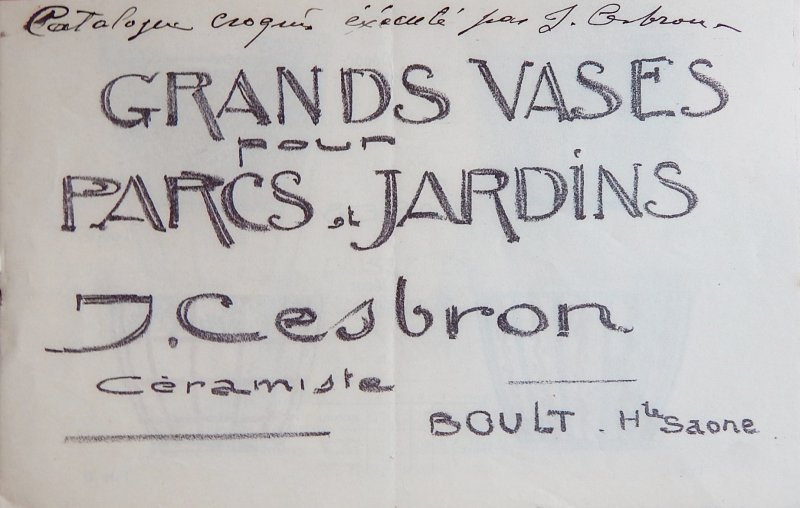 Catalogue croquis éxécuté par J. Cesbron
GRANDS VASES
pour
PARCS et JARDINS
J. Cesbron
Céramiste
BOULT . Hte Saone